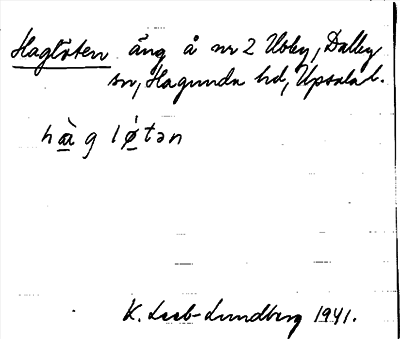 Haglöten äng å nr 2 Ubby, Dalby
sn, Hagunda hd, Upsala l.
hàg lǿtən
K. Leeb-Lundberg 1941.